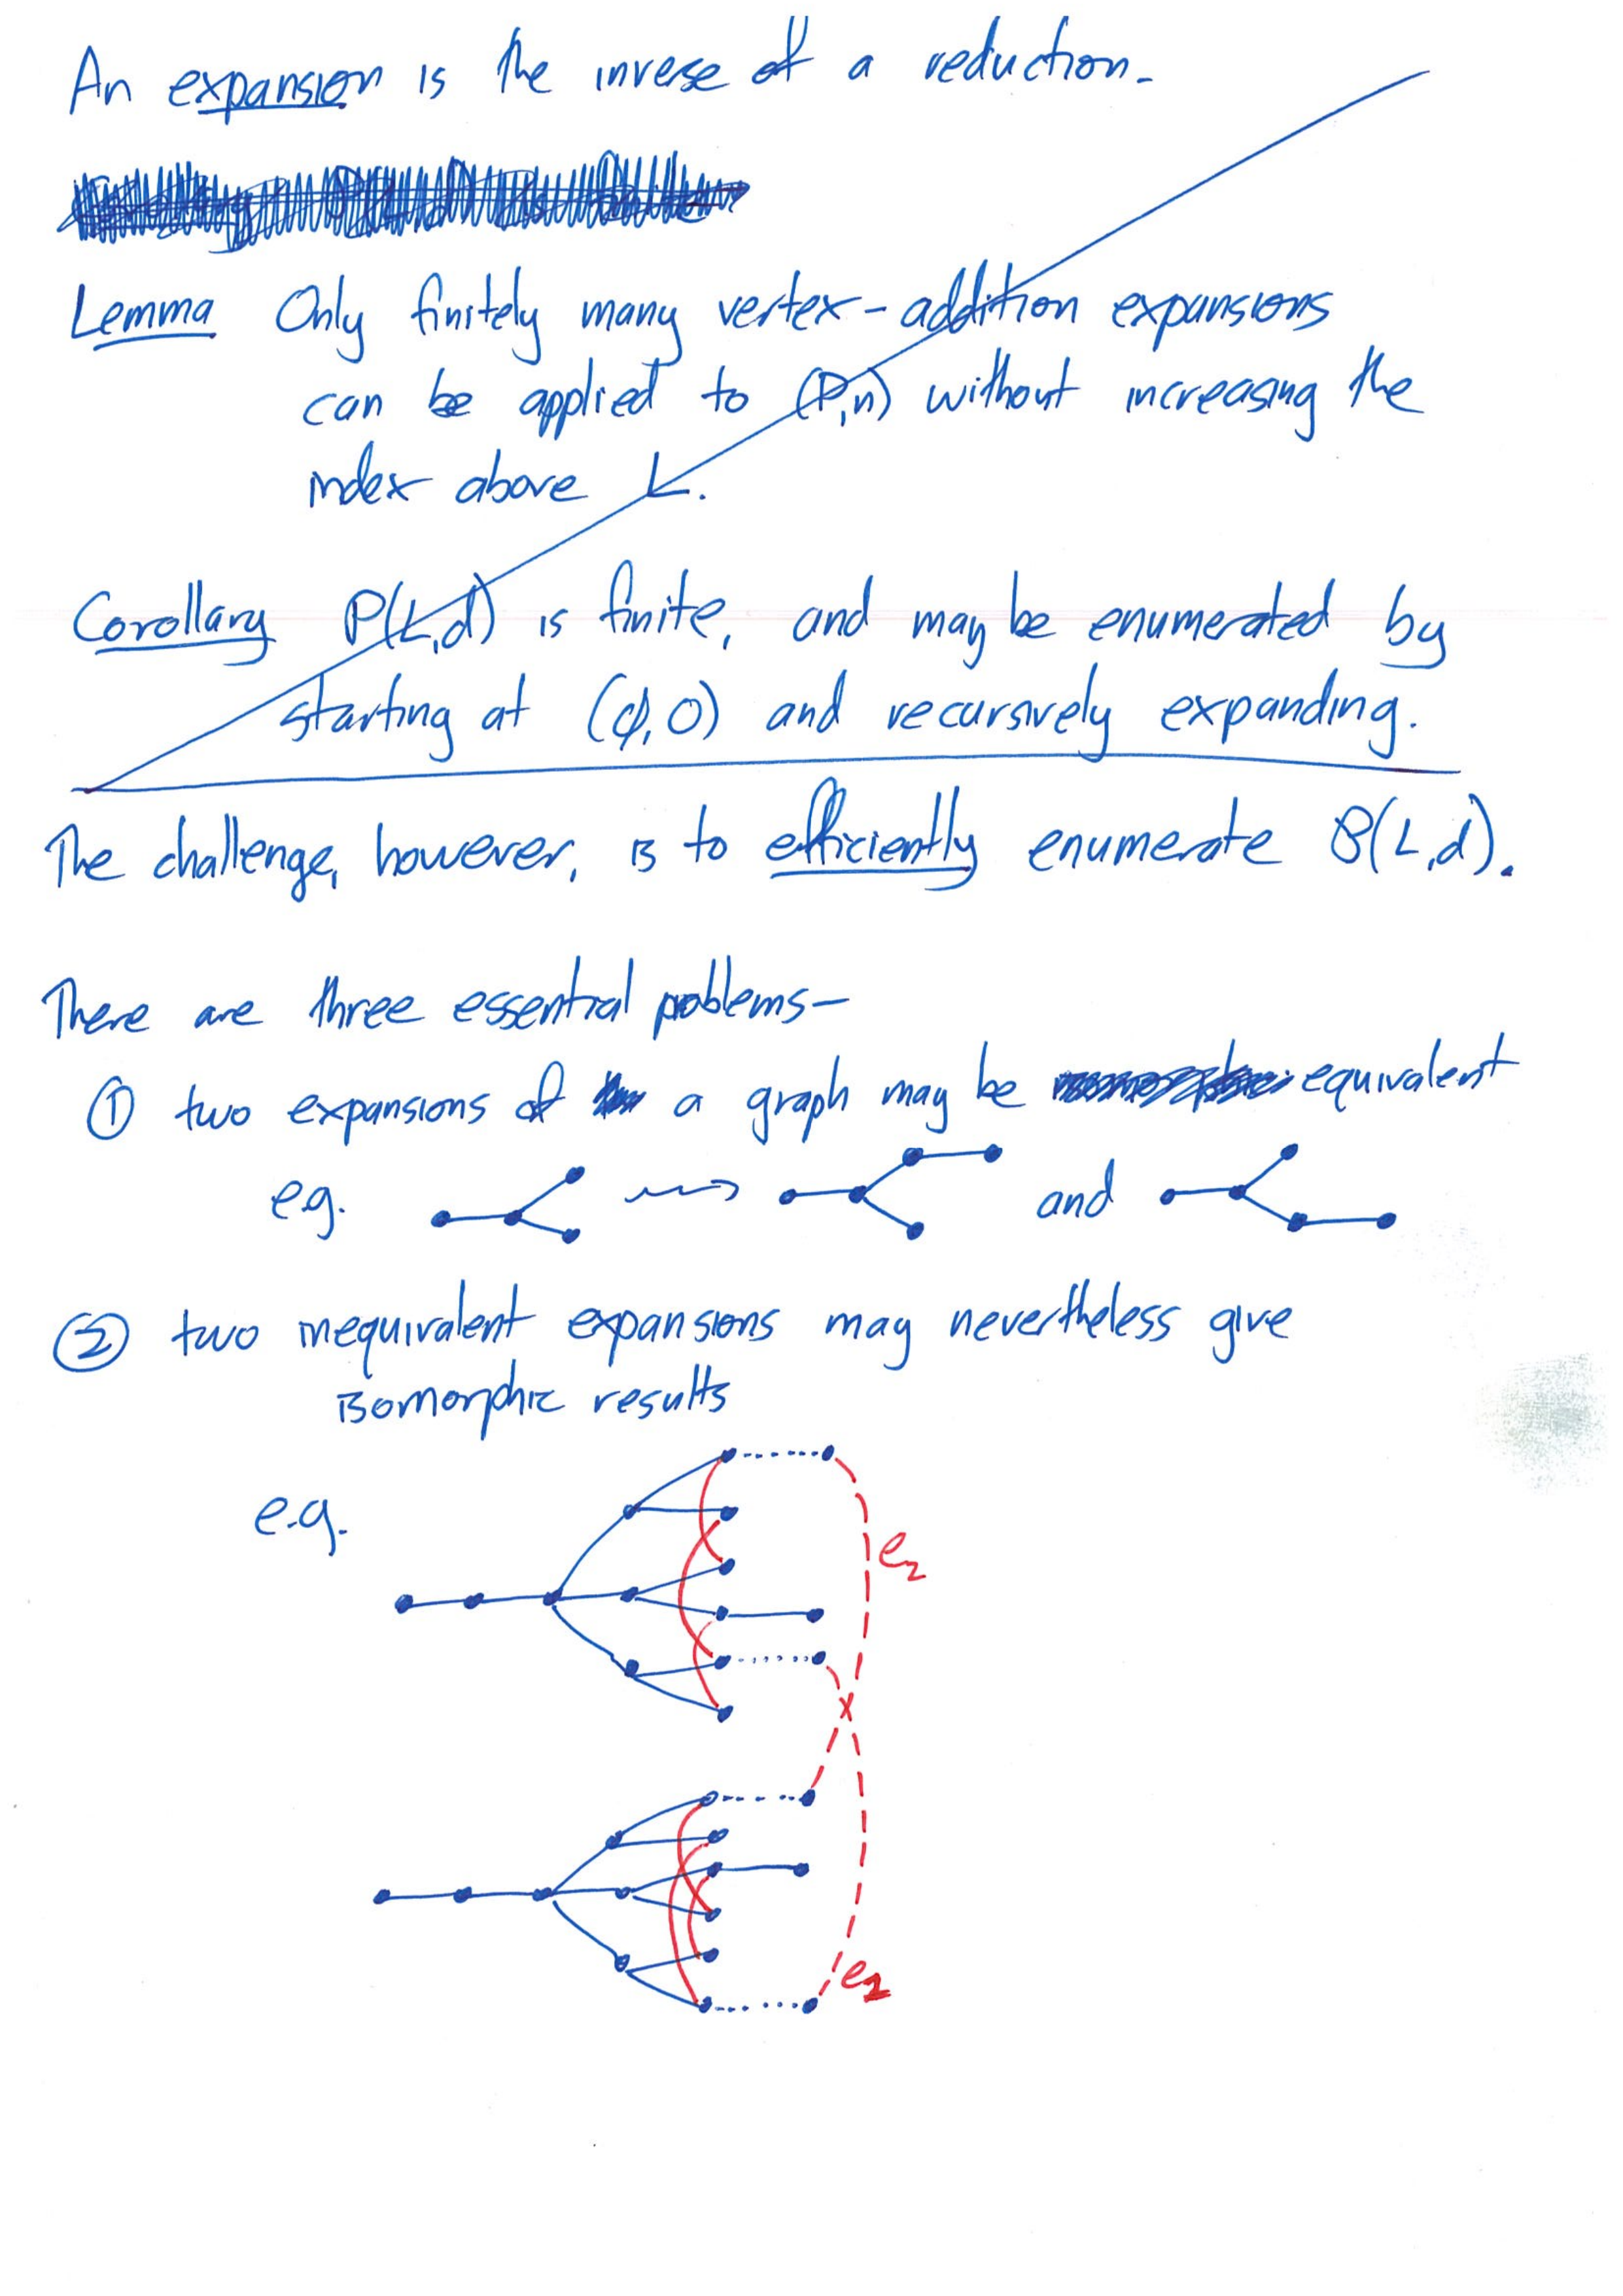 An expansion is the inverse of a reduction.
Lemma Only finitely many vertex-addition expansions
can be applied to (P,n) without increasing the
index above L.
Corollary P(L,d) is finite, and may be enumerated by
starting at (φ,0) and recursively expanding.
The challenge, however, is to efficiently enumerate P(L,d).
There are three essential problems—
① two expansions of a graph may be equivalent
e.g. and
② two inequivalent expansions may nevertheless give
isomorphic results
e.g.
e2
e1